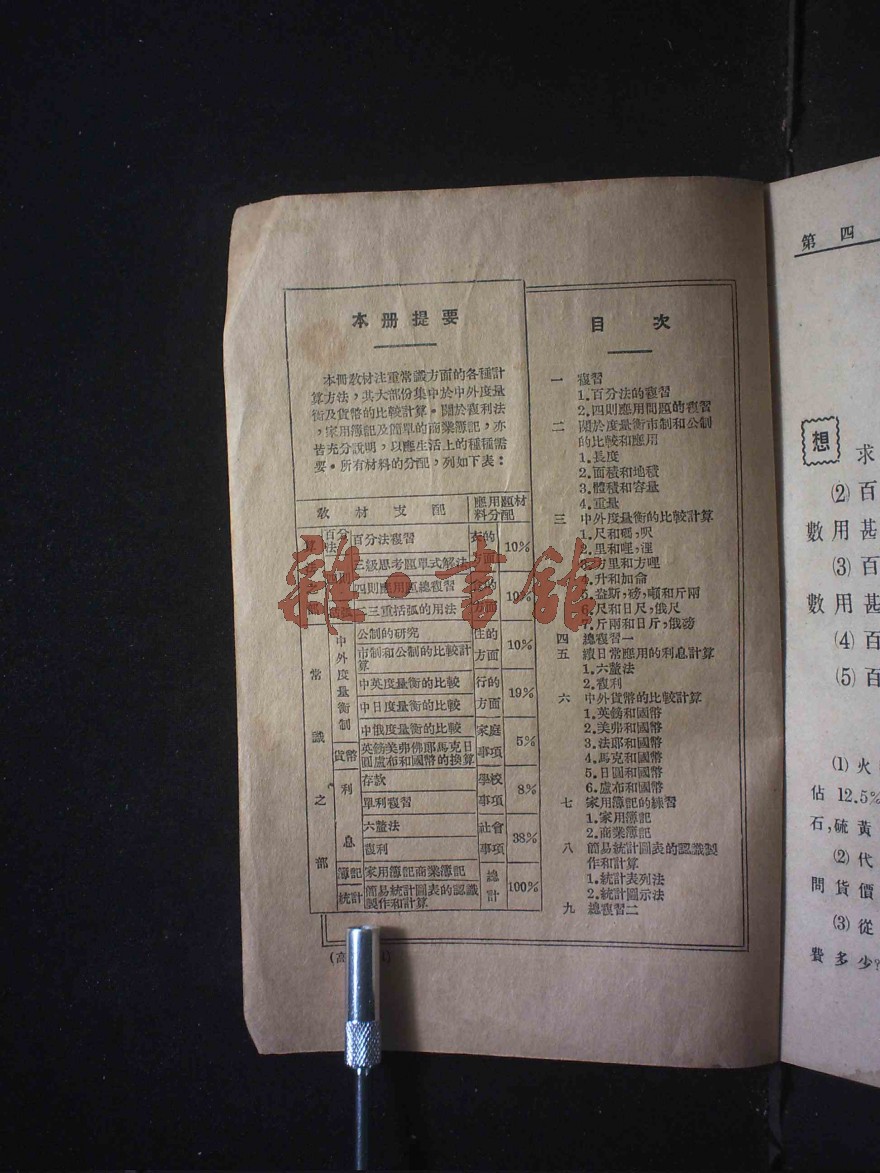 本冊提要
本冊教材注重常識方面的各種計
算方法，其大部份集中於中外度量
衡及貨幣的比較計算。關於複利法
，家用簿記及簡單的商業簿記，亦
皆充分說明，以應生活上的種種需
要。所有材料的分配，列如下表：
教材支配 應用題材料分配
百分法 百分法複習 衣的方面 10%
三級思考題單式解法
四則應用題總複習 方面
二三重括弧的用法
常識之部
中外度量衡制 公制的研究 住的方面 10%
市制和公制的比較計算
中英度量衡的比較 行的方面 19%
中日度量衡的比較
中俄度量衡的比較 家庭事項 5%
貨幣 英鎊美弗佛郎馬克日圓盧布和國幣的換算
利息 存款 學校事項 8%
單利複習
六釐法 社會事項 38%
複利
簿記 家用簿記商業簿記 總計 100%
統計 簡易統計圖表的認識製作和計算
目次
一 複習
1.百分法的複習
2.四則應用問題的複習
二 關於度量衡市制和公制
的比較和應用
1.長度
2.面積和地積
3.體積和容量
4.重量
三 中外度量衡的比較計算
1.尺和碼，呎
2.里和哩，浬
3.方里和方哩
4.升和加侖
5.盎斯，磅，噸和斤兩
6.尺和日尺，俄尺
7.斤兩和日斤，俄磅
四 總複習一
五 續日常應用的利息計算
1.六釐法
2.複利
六 中外貨幣的比較計算
1.英鎊和國幣
2.美弗和國幣
3.法郎和國幣
4.馬克和國幣
5.日圓和國幣
6.盧布和國幣
七 家用簿記的練習
1.家用簿記
2.商業簿記
八 簡易統計圖表的認識製
作和計算
1.統計表列法
2.統計圖示法
九 總複習二
雜·書館
第四
想
求
(2) 百
數用甚
(3) 百
數用甚
(4) 百
(5) 百
(1) 火
佔 12.5%
石，硫黃
(2) 代
問貨價
(3) 從
費多少？